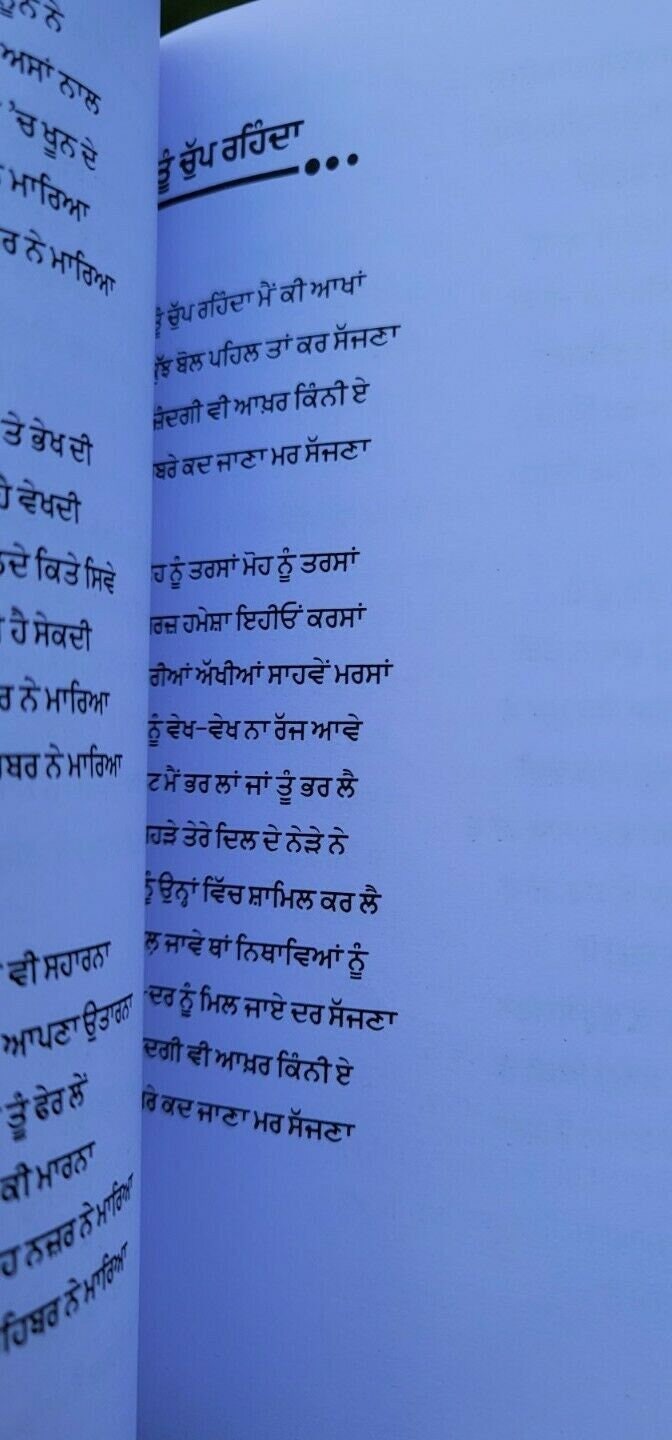 ਅਸਾਂ ਨਾਲ
'ਚ ਖੂਨ ਦੇ
ਮਾਰਿਆ
ਨੇ ਮਾਰਿਆ
ਤੇ ਭੇਖ ਦੀ
ਵੇਖਦੀ
ਕਿਤੇ ਸਿਵੇ
ਹੈ ਸੇਕਦੀ
ਨੇ ਮਾਰਿਆ
ਨੇ ਮਾਰਿਆ
ਵੀ ਸਹਾਰਨਾ
ਆਪਣਾ ਉਤਾਰਨਾ
ਤੂੰ ਫੇਰ ਲੇਂ
ਕੀ ਮਾਰਨਾ
ਨਜ਼ਰ ਨੇ ਮਾਰਿਆ
ਨੇ ਮਾਰਿਆ
ਤੂੰ ਚੁੱਪ ਰਹਿੰਦਾ...
ਤੂੰ ਚੁੱਪ ਰਹਿੰਦਾ ਮੈਂ ਕੀ ਆਖਾਂ
ਬੋਲ ਪਹਿਲ ਤਾਂ ਕਰ ਸੱਜਣਾ
ਵੀ ਆਖ਼ਰ ਕਿੰਨੀ ਏ
ਕਦ ਜਾਣਾ ਮਰ ਸੱਜਣਾ
ਨੂੰ ਤਰਸਾਂ ਮੋਹ ਨੂੰ ਤਰਸਾਂ
ਹਮੇਸ਼ਾ ਇਹੀਓਂ ਕਰਸਾਂ
ਅੱਖੀਆਂ ਸਾਹਵੇਂ ਮਰਸਾਂ
ਵੇਖ-ਵੇਖ ਨਾ ਰੱਜ ਆਵੇ
ਮੈਂ ਭਰ ਲਾਂ ਜਾਂ ਤੂੰ ਭਰ ਲੈ
ਤੇਰੇ ਦਿਲ ਦੇ ਨੇੜੇ ਨੇ
ਉਨ੍ਹਾਂ ਵਿੱਚ ਸ਼ਾਮਿਲ ਕਰ ਲੈ
ਜਾਵੇ ਥਾਂ ਨਿਥਾਵਿਆਂ ਨੂੰ
ਨੂੰ ਮਿਲ ਜਾਏ ਦਰ ਸੱਜਣਾ
ਵੀ ਆਖ਼ਰ ਕਿੰਨੀ ਏ
ਕਦ ਜਾਣਾ ਮਰ ਸੱਜਣਾ